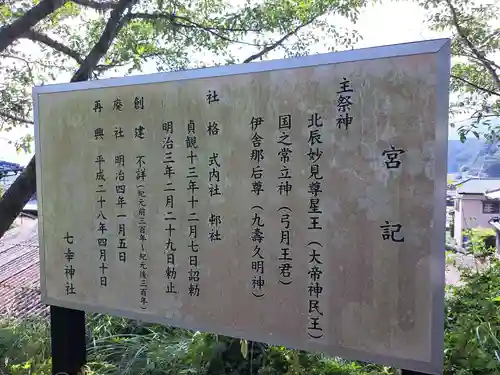 宮記
主祭神
北辰妙見尊星王（大帝神民王）
国之常立神（弓月王君）
伊舎那后尊（九壽久明神）
社格 式内社 郷社
貞観十三年十二月七日詔勅
明治三年二月二十九日勅止
創建 不詳（紀元前三百年~紀元後三百年）
廃社 明治四年一月五日
再興 平成二十八年四月十日
七幸神社